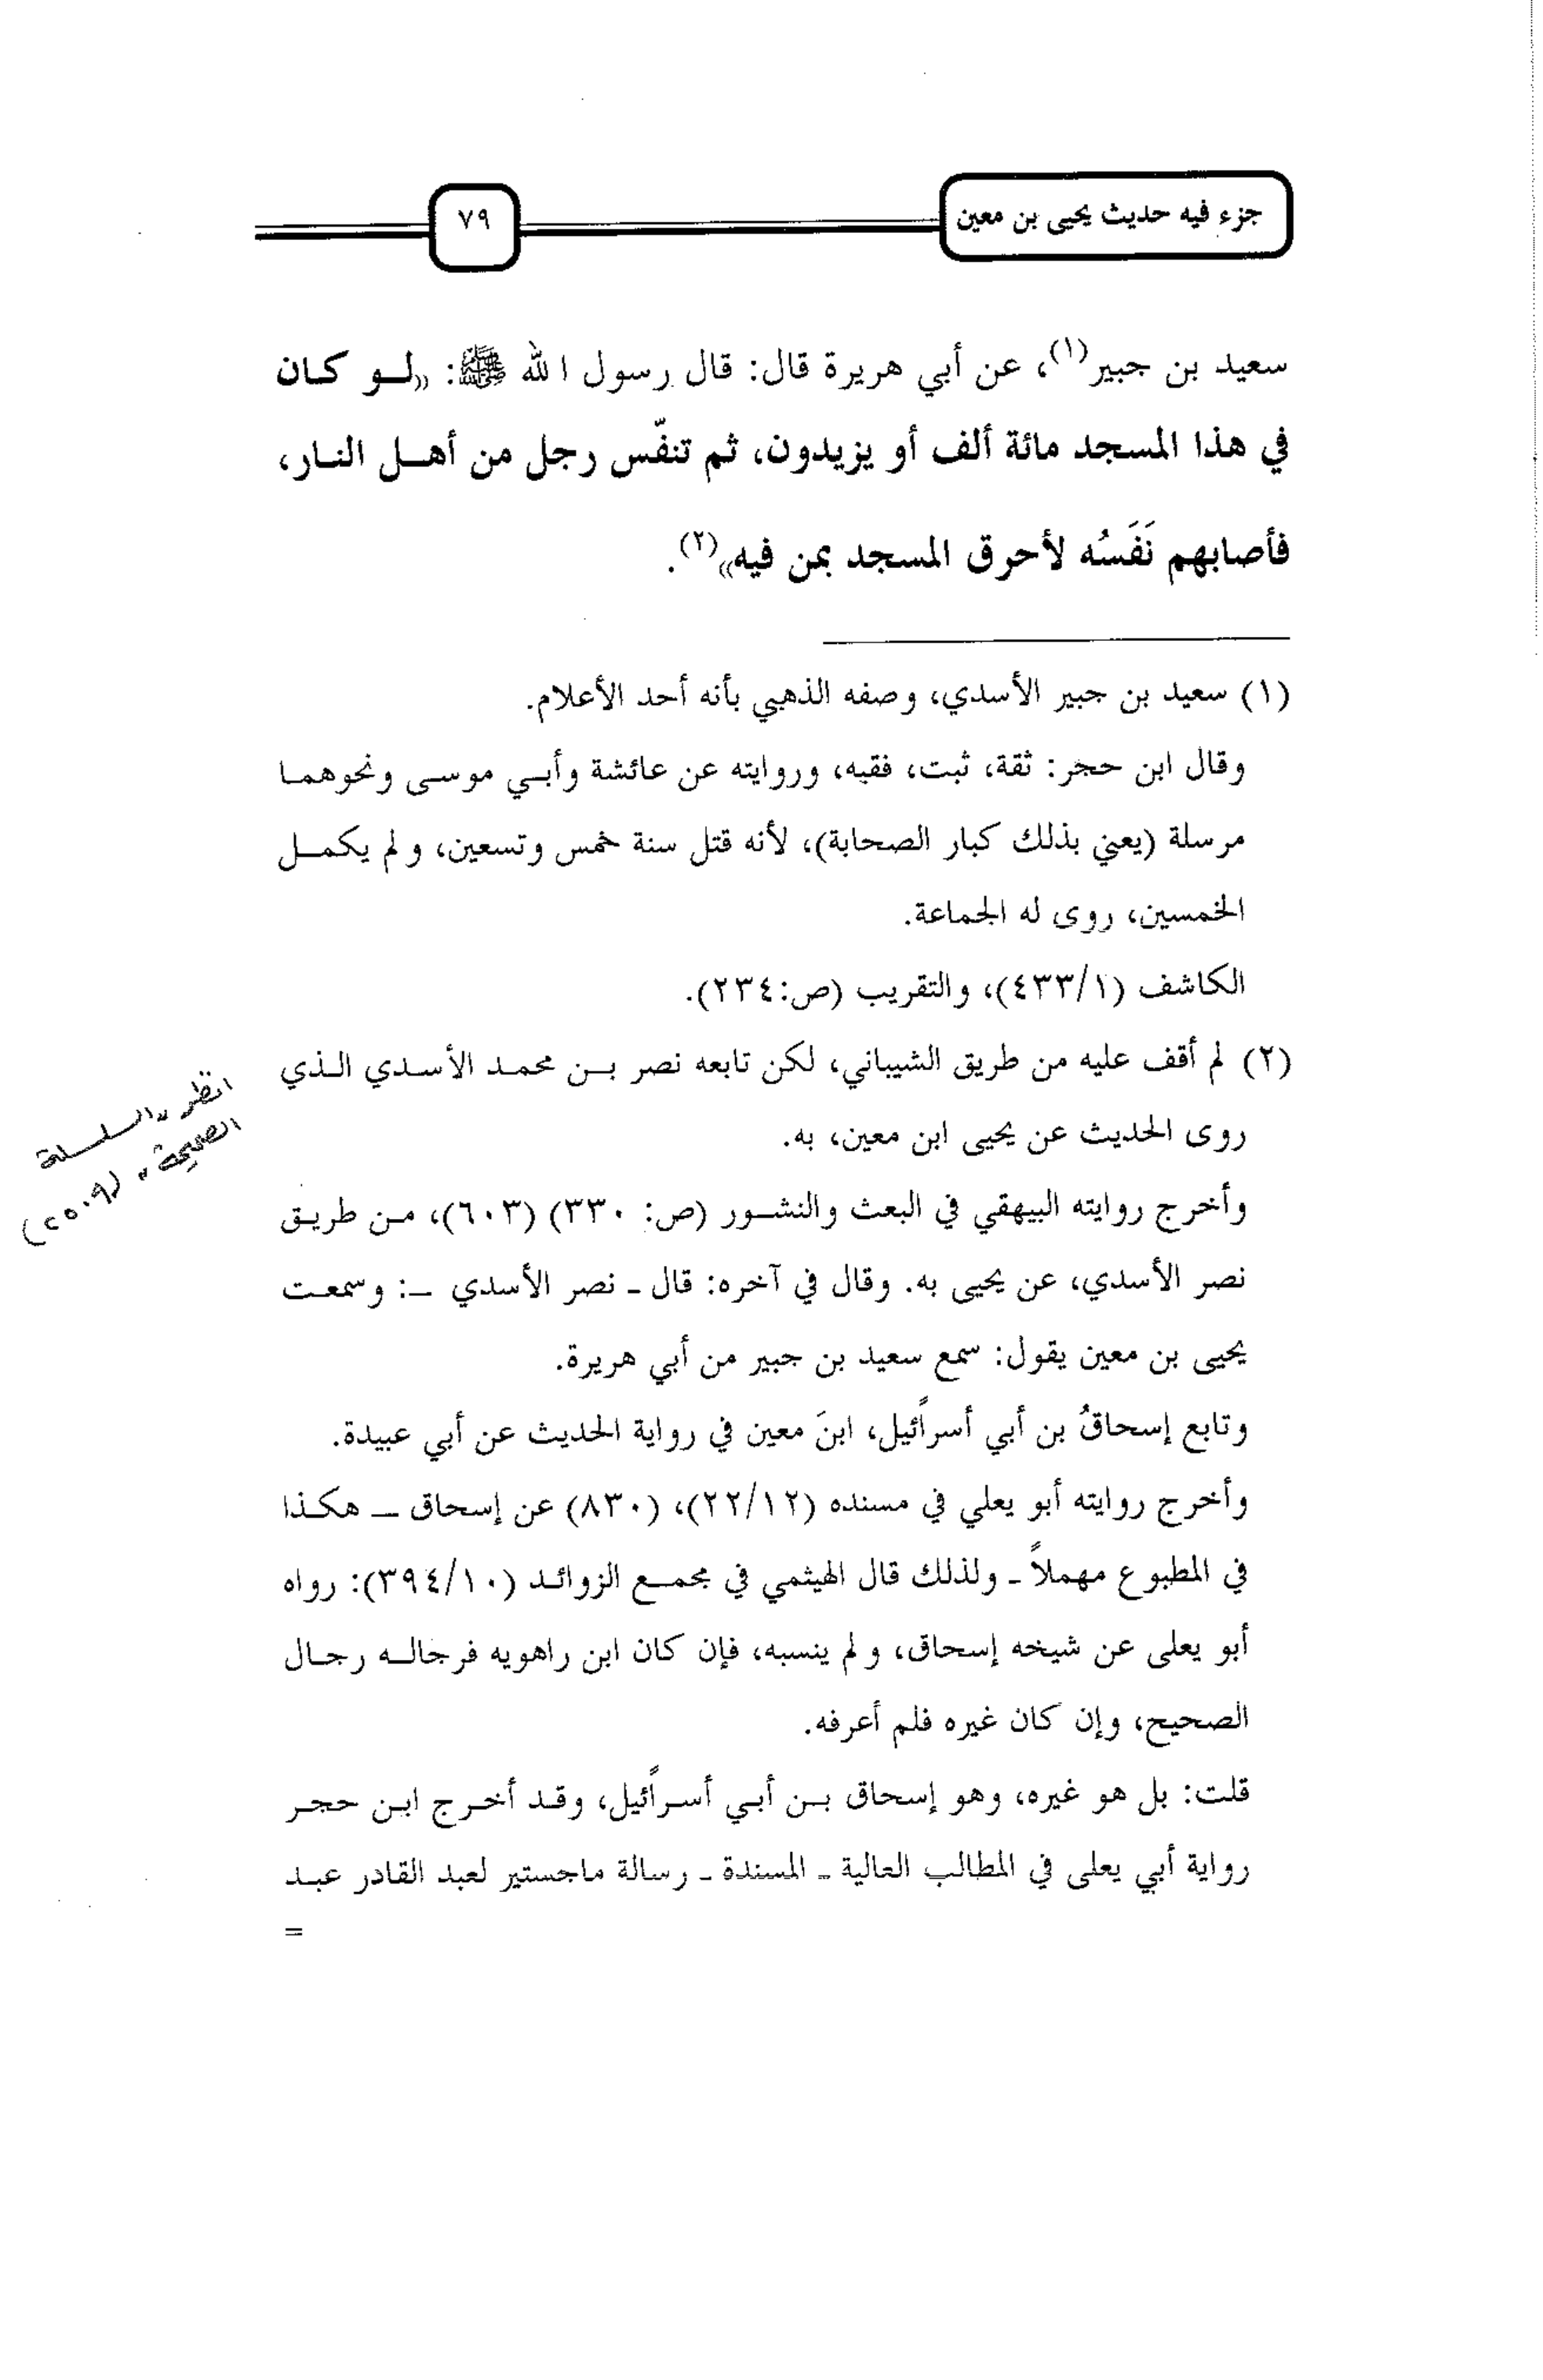 جزء فيه حديث يحيى بن معين
٧٩
سعيد بن جبير(١)، عن أبي هريرة قال: قال رسول الله ﷺ: «لـو كـان
في هذا المسجد مائة ألف أو يزيدون، ثم تنفّس رجل من أهـل النـار،
فأصابهم نَفَسُه لأحرق المسجد بمن فيه»(٢).
(١) سعيد بن جبير الأسدي، وصفه الذهبي بأنه أحد الأعلام.
وقال ابن حجر: ثقة، ثبت، فقيه، وروايته عن عائشة وأبـي موسـى ونحوهمـا
مرسلة (يعني بذلك كبار الصحابة)، لأنه قتل سنة خمس وتسعين، ولم يكمـل
الخمسين، روى له الجماعة.
الكاشف (٤٣٣/١)، والتقريب (ص:٢٣٤).
(٢) لم أقف عليه من طريق الشيباني، لكن تابعه نصر بـن محمـد الأسـدي الـذي
روى الحديث عن يحيى ابن معين، به.
وأخرج روايته البيهقي في البعث والنشـور (ص: ٣٣٠) (٦٠٣)، مـن طريـق
نصر الأسدي، عن يحيى به. وقال في آخره: قال ـ نصر الأسدي ـ: وسمعـت
يحيى بن معين يقول: سمع سعيد بن جبير من أبي هريرة.
وتابع إسحاقُ بن أبي أسرائيل، ابنَ معين في رواية الحديث عن أبي عبيدة.
وأخرج روايته أبو يعلي في مسنده (٢٢/١٢)، (٨٣٠) عن إسحاق ـ هكـذا
في المطبوع مهملاً ـ ولذلك قال الهيثمي في مجمـع الزوائـد (٣٩٤/١٠): رواه
أبو يعلى عن شيخه إسحاق، ولم ينسبه، فإن كان ابن راهويه فرجالـه رجـال
الصحيح، وإن كان غيره فلم أعرفه.
قلت: بل هو غيره، وهو إسحاق بـن أبـي أسـرائيل، وقـد أخـرج ابـن حجـر
رواية أبي يعلى في المطالب العالية ـ المسندة ـ رسالة ماجستير لعبد القادر عبـد
=
انظر «السلسلة
الصحيحة» (٢٥٠٩)